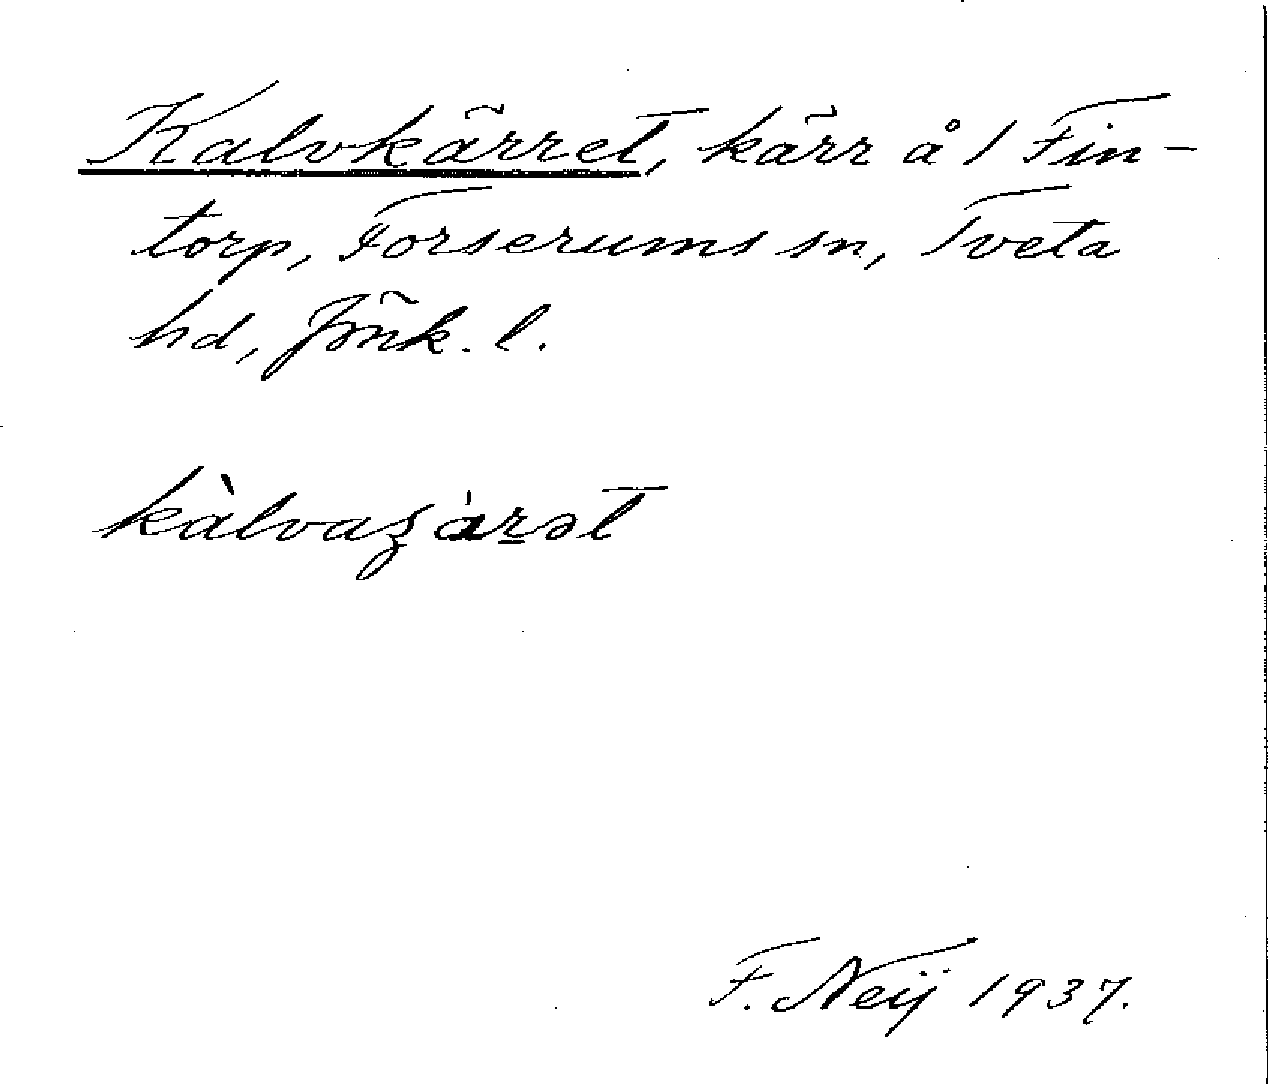 Kalvkärret, kärr å 1 Fin-
torp, Forserums sn, Tveta
hd, Jönk. l.
F. Neij 1937.